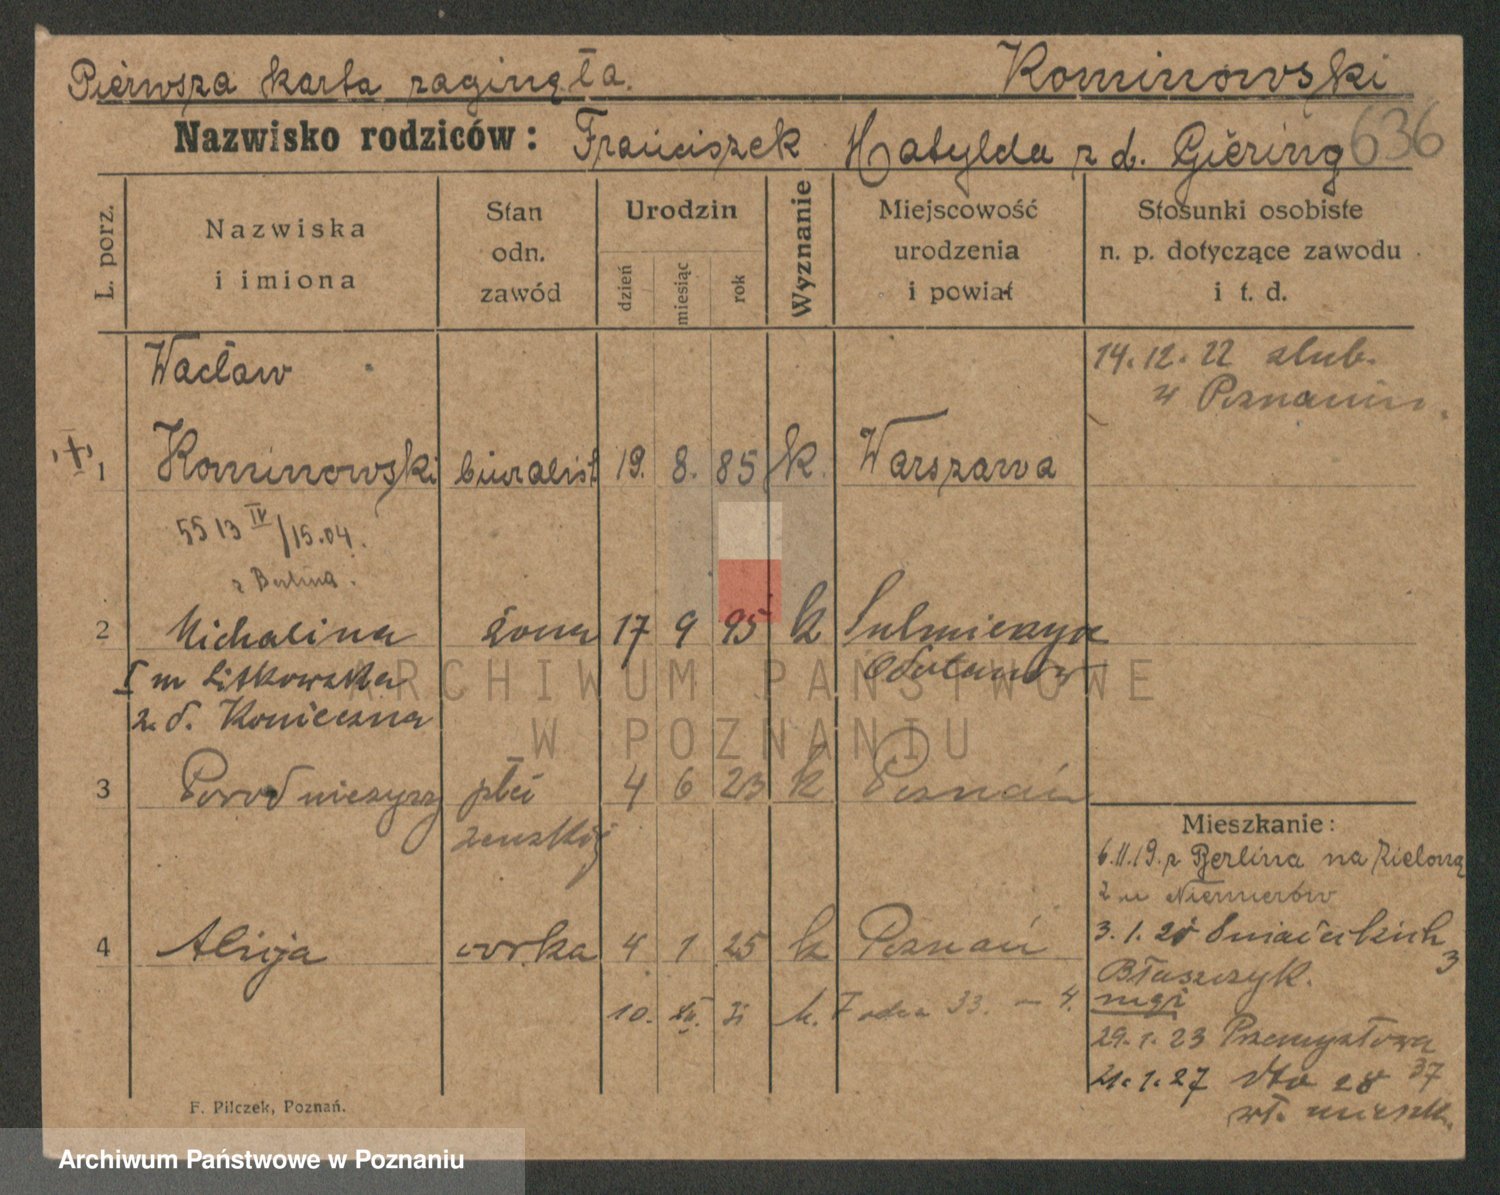 Pierwsza karta zaginęła. Kominowski
Nazwisko rodziców: Franciszek Matylda z d. Giering 636
L. porz.
Nazwiska i imiona
Stan odn. zawód
Urodzin
dzień
miesiąc
rok
Wyznanie
Miejscowość urodzenia i powiat
Stosunki osobiste n. p. dotyczące zawodu i t. d.
Wacław
14. 12. 22 ślub.
w Poznaniu.
1 Kominowski biuralist 19. 8. 85 k. Warszawa
5513 IV/15.04.
z Berlina.
2 Michalina żona 17 9 95 k Sulmierzyce
I m Litkowska Odolanów
z d. Konieczna
3 Poród nieżyw płci 4 6 23 k Poznań
żeńskiej
Mieszkanie:
6.11.19. z Berlina na Zieloną
2 u Niemierów
4 Alicja córka 4 1 25 k Poznań
3. 1. 20 Śniadeckich 3
Błaszczyk.
10. 33. – 4.
29. 1. 23 Przemysłowa 37
21. 1. 27 dto 28
wł. mieszk.
F. Pilczek, Poznań.
ARCHIWUM PAŃSTWOWE
W POZNANIU
Archiwum Państwowe w Poznaniu